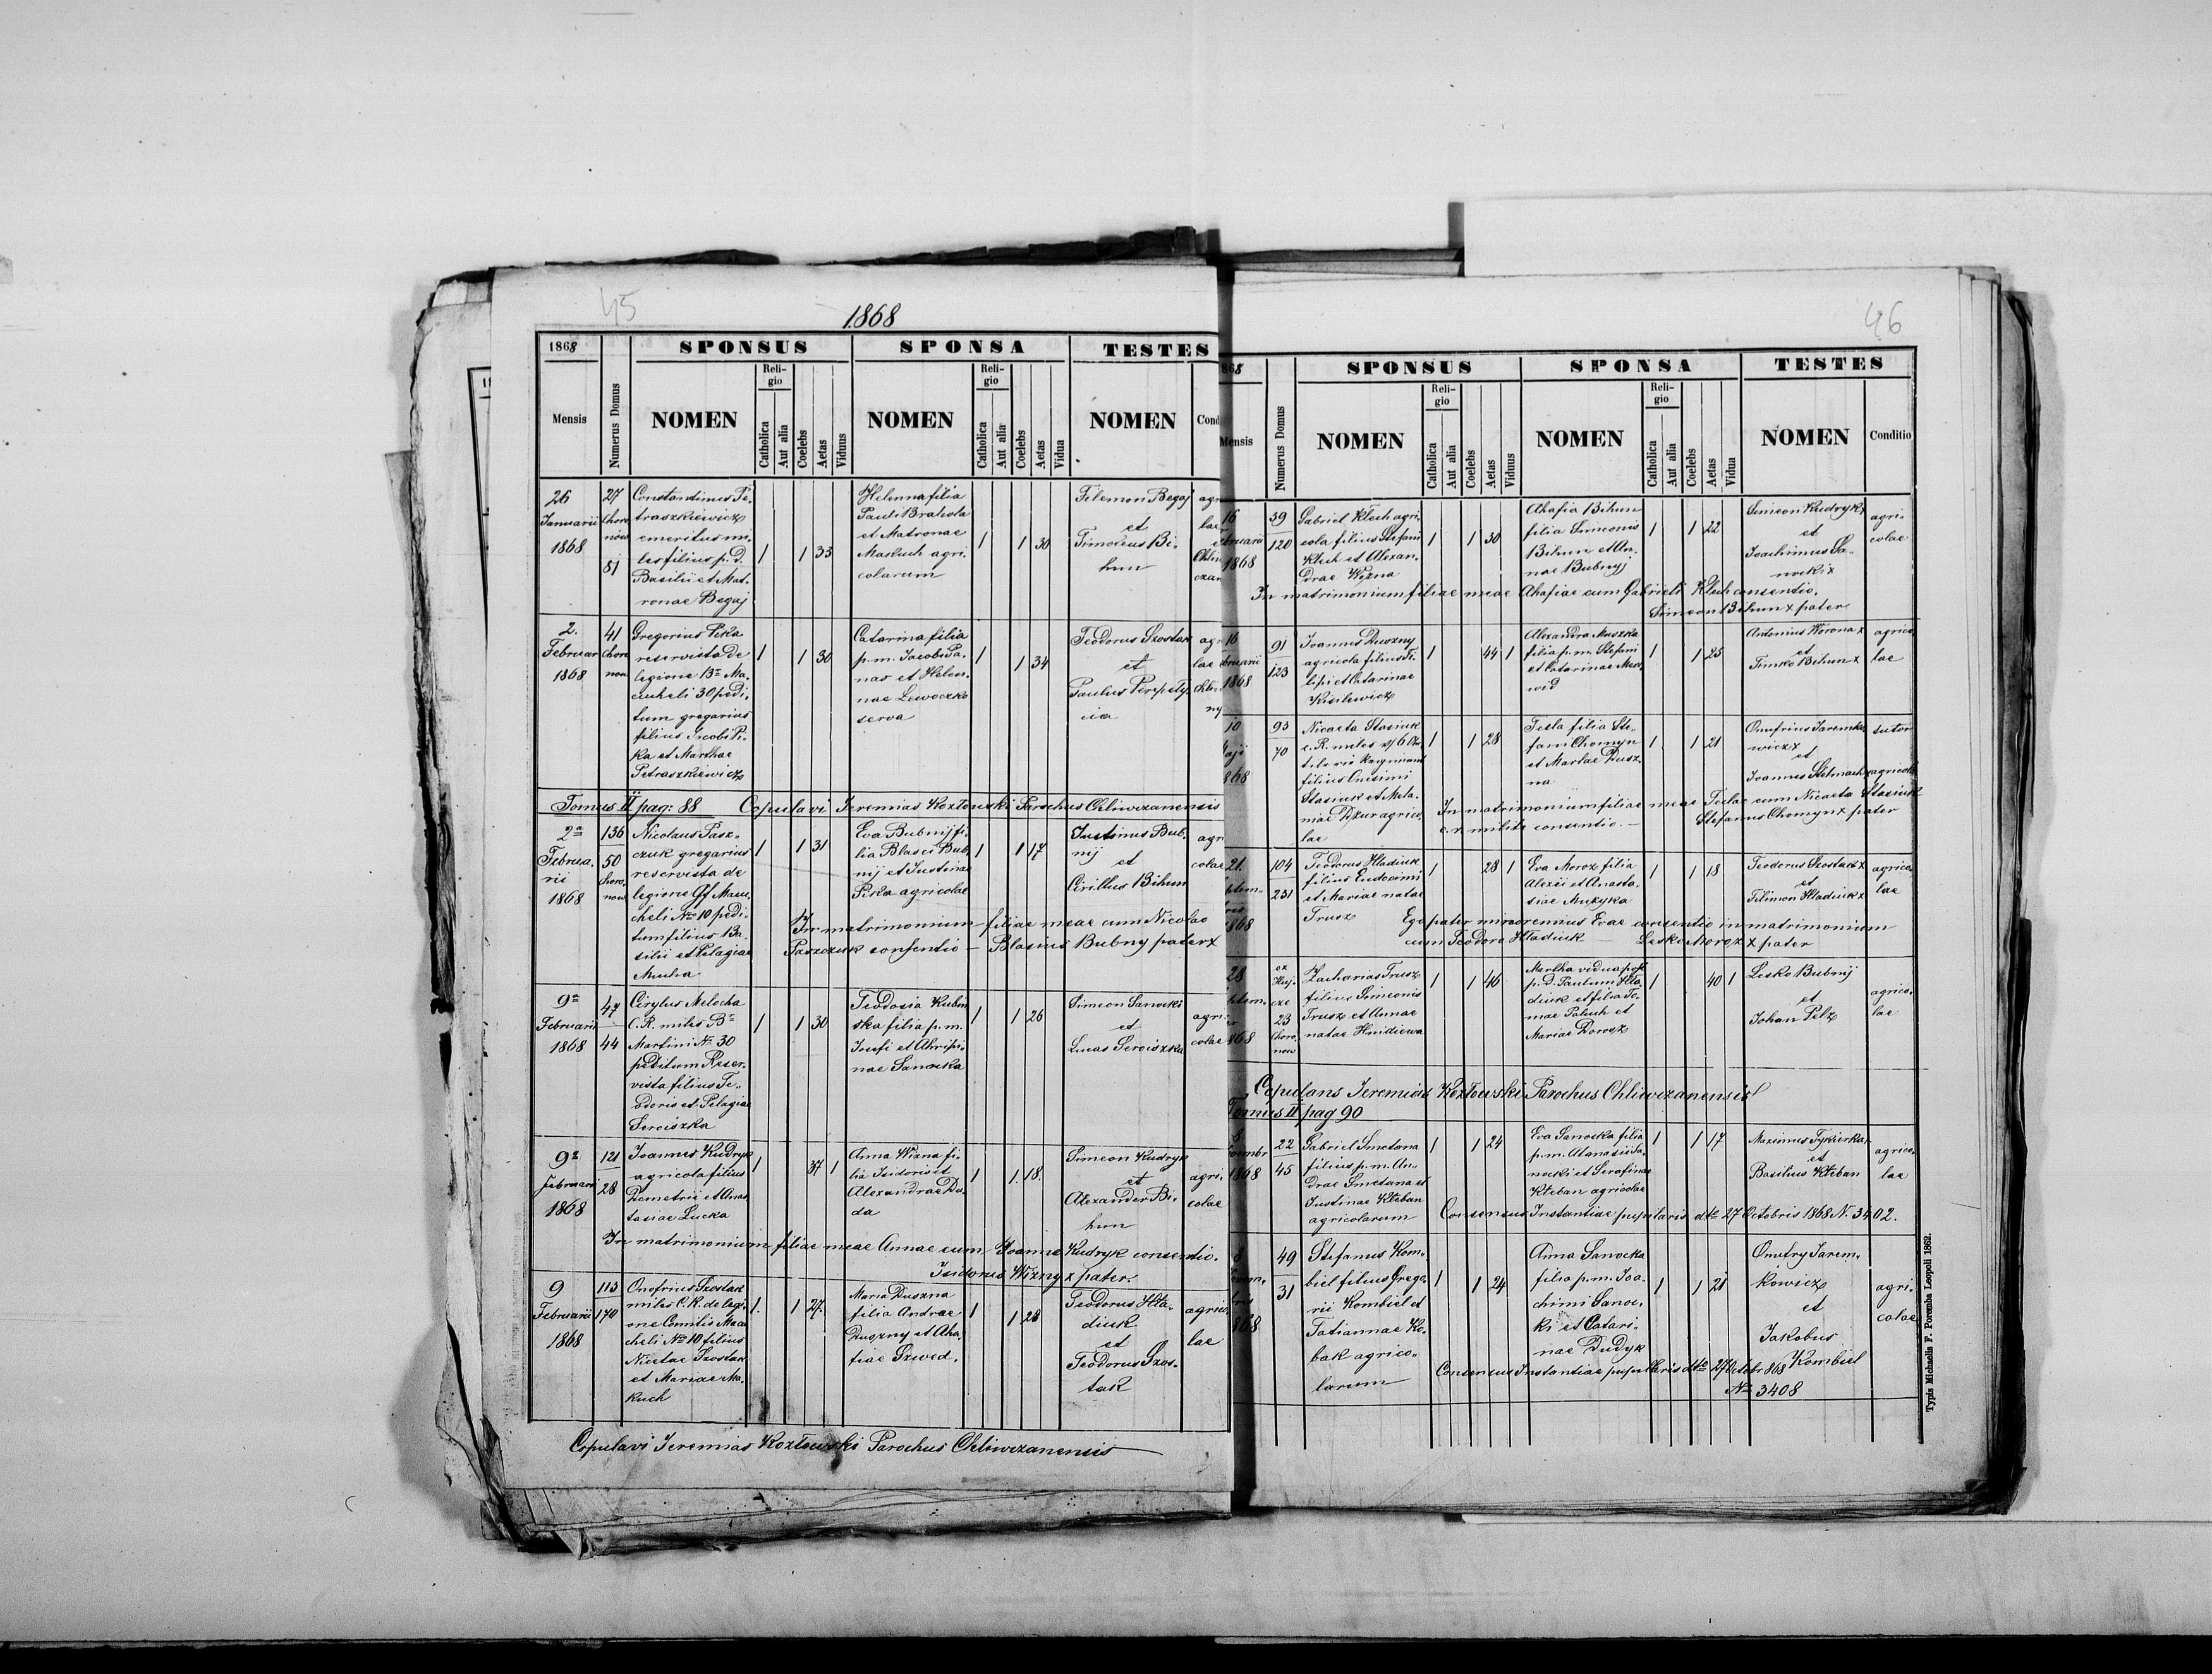 45
1868
1868
SPONSUS
SPONSA
TESTES
Mensis
Numerus Domus
NOMEN
Reli-
gio
Catholica
Aut alia
Coelebs
Aetas
Viduus
NOMEN
Reli-
gio
Catholica
Aut alia
Coelebs
Aetas
Vidua
NOMEN
Cond
26
Januarii
1868
27
Choro
now
81
Constantinus Pe-
traszkiewicz
emeritus mi-
les filius p. D.
Basilii et Mat-
ronae Begaj
1 1 33
Helenna filia
Pauli Brahola
et Matronae
Makuch agri
colarum
1 1 30
Filemon Begaj
et
Timoteus Bi-
hun
agr
lae
2.
Februar
1868
41
Choro
now
Gregorius Pika
reservista de
legione Bar. Ma-
cucheli 30 pedi-
tum gregarius
filius Jacobi Pi-
ka et Marthae
Petraszkiewicz
1 1 30
Catarina filia
p. m. Jacobi Pa-
nas et Helen-
nae Lewoczko
serva
1 1 34
Teodorus Szostak
et
Paulus
agr
lae
Tomus II pag: 88 Copulavi Jeremias Kozłowski Parochus Chliwczanensis
2a
Februa-
rii
1868
136
50
Choro
now
Nicolaus Pasz-
czuk gregarius
reservista de
legione Gf. Macu-
cheli No 10 pedi-
tum filius Ba-
silii et Pelagiae
Mucha
1 1 31
Eva Bubnij fi-
lia Blasei Bub-
nij et Justinae
Pika agricolae
1 1 17
Justinus Bub-
nij
et
Cirillus Bihun
agri
colae
In matrimonium filiae meae cum Nicolao
Paszczuk consentio - Blasius Bubny pater x
9a
Februarii
1868
47
44
Cyrylus Melocha
C. R. miles Br
Martini No 30
peditum Reser-
vista filius Te-
odoris et Pelagiae
Serciszka
1 1 30
Teodosia Kubin
ska filia p. m.
Josefi et Ahripi-
nae Sanocka
1 1 26
Simeon Sanocki
et
Lucas Serciszka
agri-
colae
9a
Februarii
1868
121
28
Joannes Kudryk
agricola filius
Demetrii et Anas
tasiae Lucka
1 37 1
Anna Wizna fi-
lia Isidoris et
Alexandrae Du-
da
1 1. 18.
Simeon Kudryk
et
Alexander Bi-
hun
agri-
colae
In matrimonium filiae meae Annae cum Joanne Kudryk consentio.
Isidorus Wizny x pater.
9
Februarii
1868
113
170
Onofrius Szostak
miles C. R. de legi-
one Comitis Macu
cheli No 10 filius
Nicetae Szostak
et Mariae Ma-
kuch
1. 1 27.
Maria Duszna
filia Andrae
Duszny et Aha-
fiae Szwed.
1 1 28
Teodorus Hła-
diuk
et
Teodorus Szos-
tak
agrico
lae
Copulavi Jeremias Kozłowski Parochus Chliwczanensis
46
868
SPONSUS
SPONSA
TESTES
Mensis
Numerus Domus
NOMEN
Reli-
gio
Catholica
Aut alia
Coelebs
Aetas
Viduus
NOMEN
Reli-
gio
Catholica
Aut alia
Coelebs
Aetas
Vidua
NOMEN
Conditio
16
bruarii
1868
39
120
Gabriel Klech agri-
cola filius Stefani
Klech et Alexan-
drae Wizna
1 1 30
Ahafia Bihun
filia Simeonis
Bihun et An-
nae Bubnyj
1 1 22
Simeon Kudryk x
et
Joachimus Sa-
nocki x
agri-
colae
In matrimonium filiae meae Ahafiae cum Gabrieli Klech consentio.
Simeon Bihun x pater
16
bruarii
1868
91
123
Joannes Duszny
agricola filius Fi-
lipi et Catarinae
Kisilewicz
1 44 1
Alexandra Muszka
filia p. m. Stefani
et Catarinae
1 1 25
Antonius Worona x
et
Timko Bihun x
agrico
lae
10
aji
868
93
70
Nicaeta Stasiuk
c. R. miles
filius Onisimi
Stasiuk et Mela-
niae Dzur agrico-
lae
1 1 28
Tecla filia Ste-
fani Chomyn
et Martae Dusz-
na
1 1 21
Onufrius Jaremko
wicz x
et
Joannes Stelmach x
sutor
agricola
In matrimonium filiae meae Teclae cum Nicaeta Stasiuk
c. r. milite consentio. - Stefanus Chomyn x pater
21.
ptem-
bris
1868
104
231
Teodorus Hładiuk
filius Eudocimi
et Mariae natae
Trusz
1 28 1
Eva Moroz filia
Alexii et Anasta-
siae Muzyka
1 1 18
Teodorus Szostak x
et
Filimon Hładiuk x
agrico
lae
Ego pater minorennius Evae consentio in matrimonium
cum Teodoro Hładiuk - Lesko Moroz x pater
28
ptem-
868
ex
Huj-
cze
23
Choro
now
Zacharias Trusz
filius Simeonis
Trusz et Annae
natae Hnidiewa
1 1 46
Martha vidua post
p. D. Paulum Hła-
diuk et filia To-
mae Pałuch et
Mariae Dorosz
1 40 1
Lesko Bubnij
et
Johan Pelz
agrico-
lae
Copulans Jeremias Kozłowski Parochus Chliwczanensis
Tomus II pag 90
8
ovembr
1868
22
45
Gabriel Smetana
filius p. m. An-
drae Smetana et
Justinae Kłeban
agricolarum
1 1 24
Eva Sanocka filia
p. m. Atanasii Sa-
nocki et Serafinae
Kłeban agricolae
1 1 17
Maximus
et
Basilius Kłeban
agrico-
lae
Consensus Instantiae pupilaris dto 27 Octobris 1868 N. 3402.
8
ovem-
bris
868
49
31
Stefanus Kom-
biel filius Grego-
rii Kombiel et
Tatiannae Ko-
bak agrico-
larum
1 1 24
Anna Sanocka
filia p. m. Joa-
chimi Sanoc-
ki et Catari-
nae Dudyk
1 1 21
Onufry Jarem-
kowicz
et
Jakobus
Kombiel
agri-
colae
Consensus Instantiae pupillaris dto 27 Octobr 868
No 3408
Typis Michaelis F. Poremba Leopoli 1862.